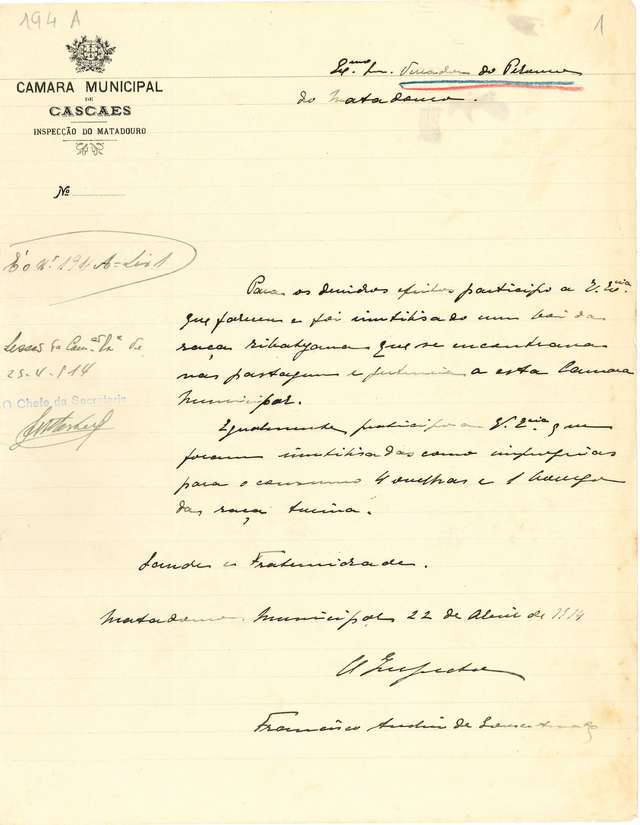 194 A
1
CAMARA MUNICIPAL
DE
CASCAES
INSPECÇÃO DO MATADOURO
No
Exmo Sr. Vereador do Pelouro
do Matadouro.
É o Nº 194 A = Liv 1
Sessão da Camª de
25-4-914
O Chefe da Secretaria
Para os devidos efeitos participo a V. Exia
que e foi inutilisado um boi da
raça ribatejana que se encontrava
nas pastagem e pertencia a esta Camara
Municipal.
Egualmente participo a V. Exia que
foram inutilisadas como improprias
para o consumo 4 ovelhas e 1 borrego
das raça
Saude e Fraternidade.
Matadouro Municipal 22 de Abril de 1914
O Inspector
Francisco de Sousa